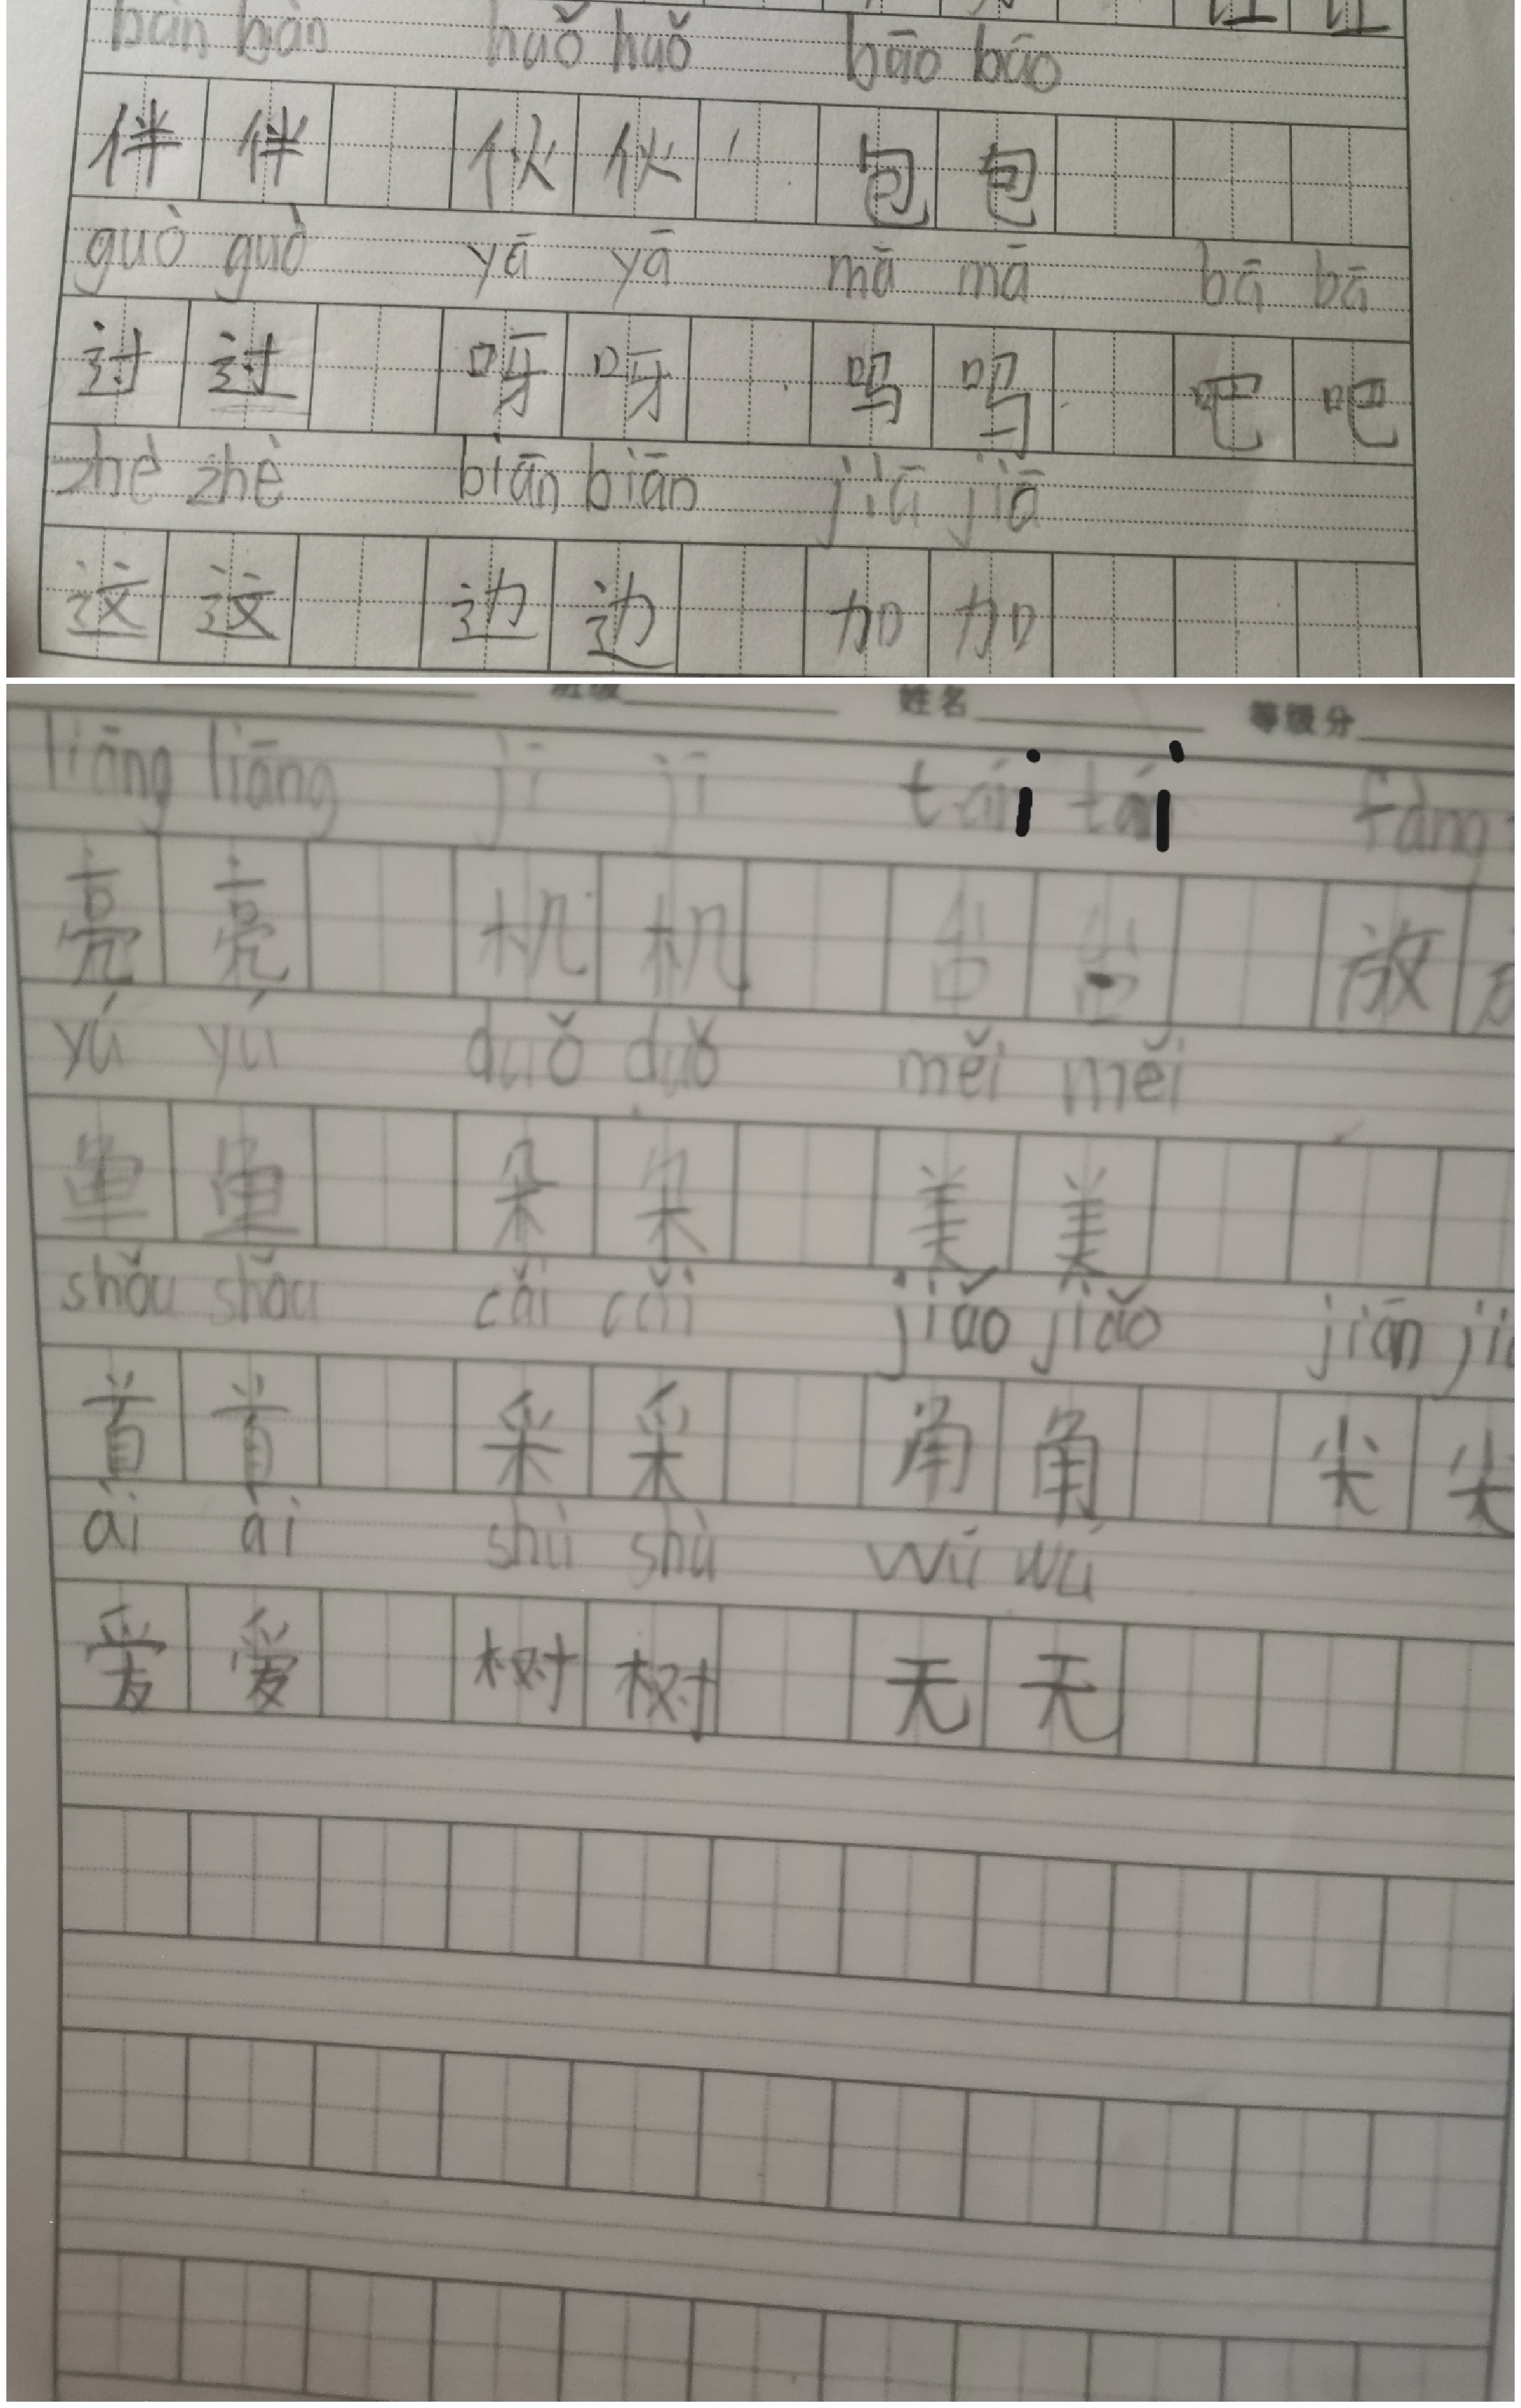 bàn bàn huǒ huǒ bāo bāo
伴 伴 伙 伙 包 包
guò guò yā yā mā mā bā bā
过 过 呀 呀 吗 吗 吧 吧
zhè zhè biān biān jiā jiā
这 这 边 边 加 加
班级 姓名 等级分
liāng liāng jī jī tái tái fàng
亮 亮 机 机 台 台 放
yú yú duǒ duǒ měi měi
鱼 鱼 朵 朵 美 美
shǒu shǒu cǎi cǎi jiǎo jiǎo jiān
首 首 采 采 角 角 尖 尖
ài ài shù shù wú wú
爱 爱 树 树 无 无